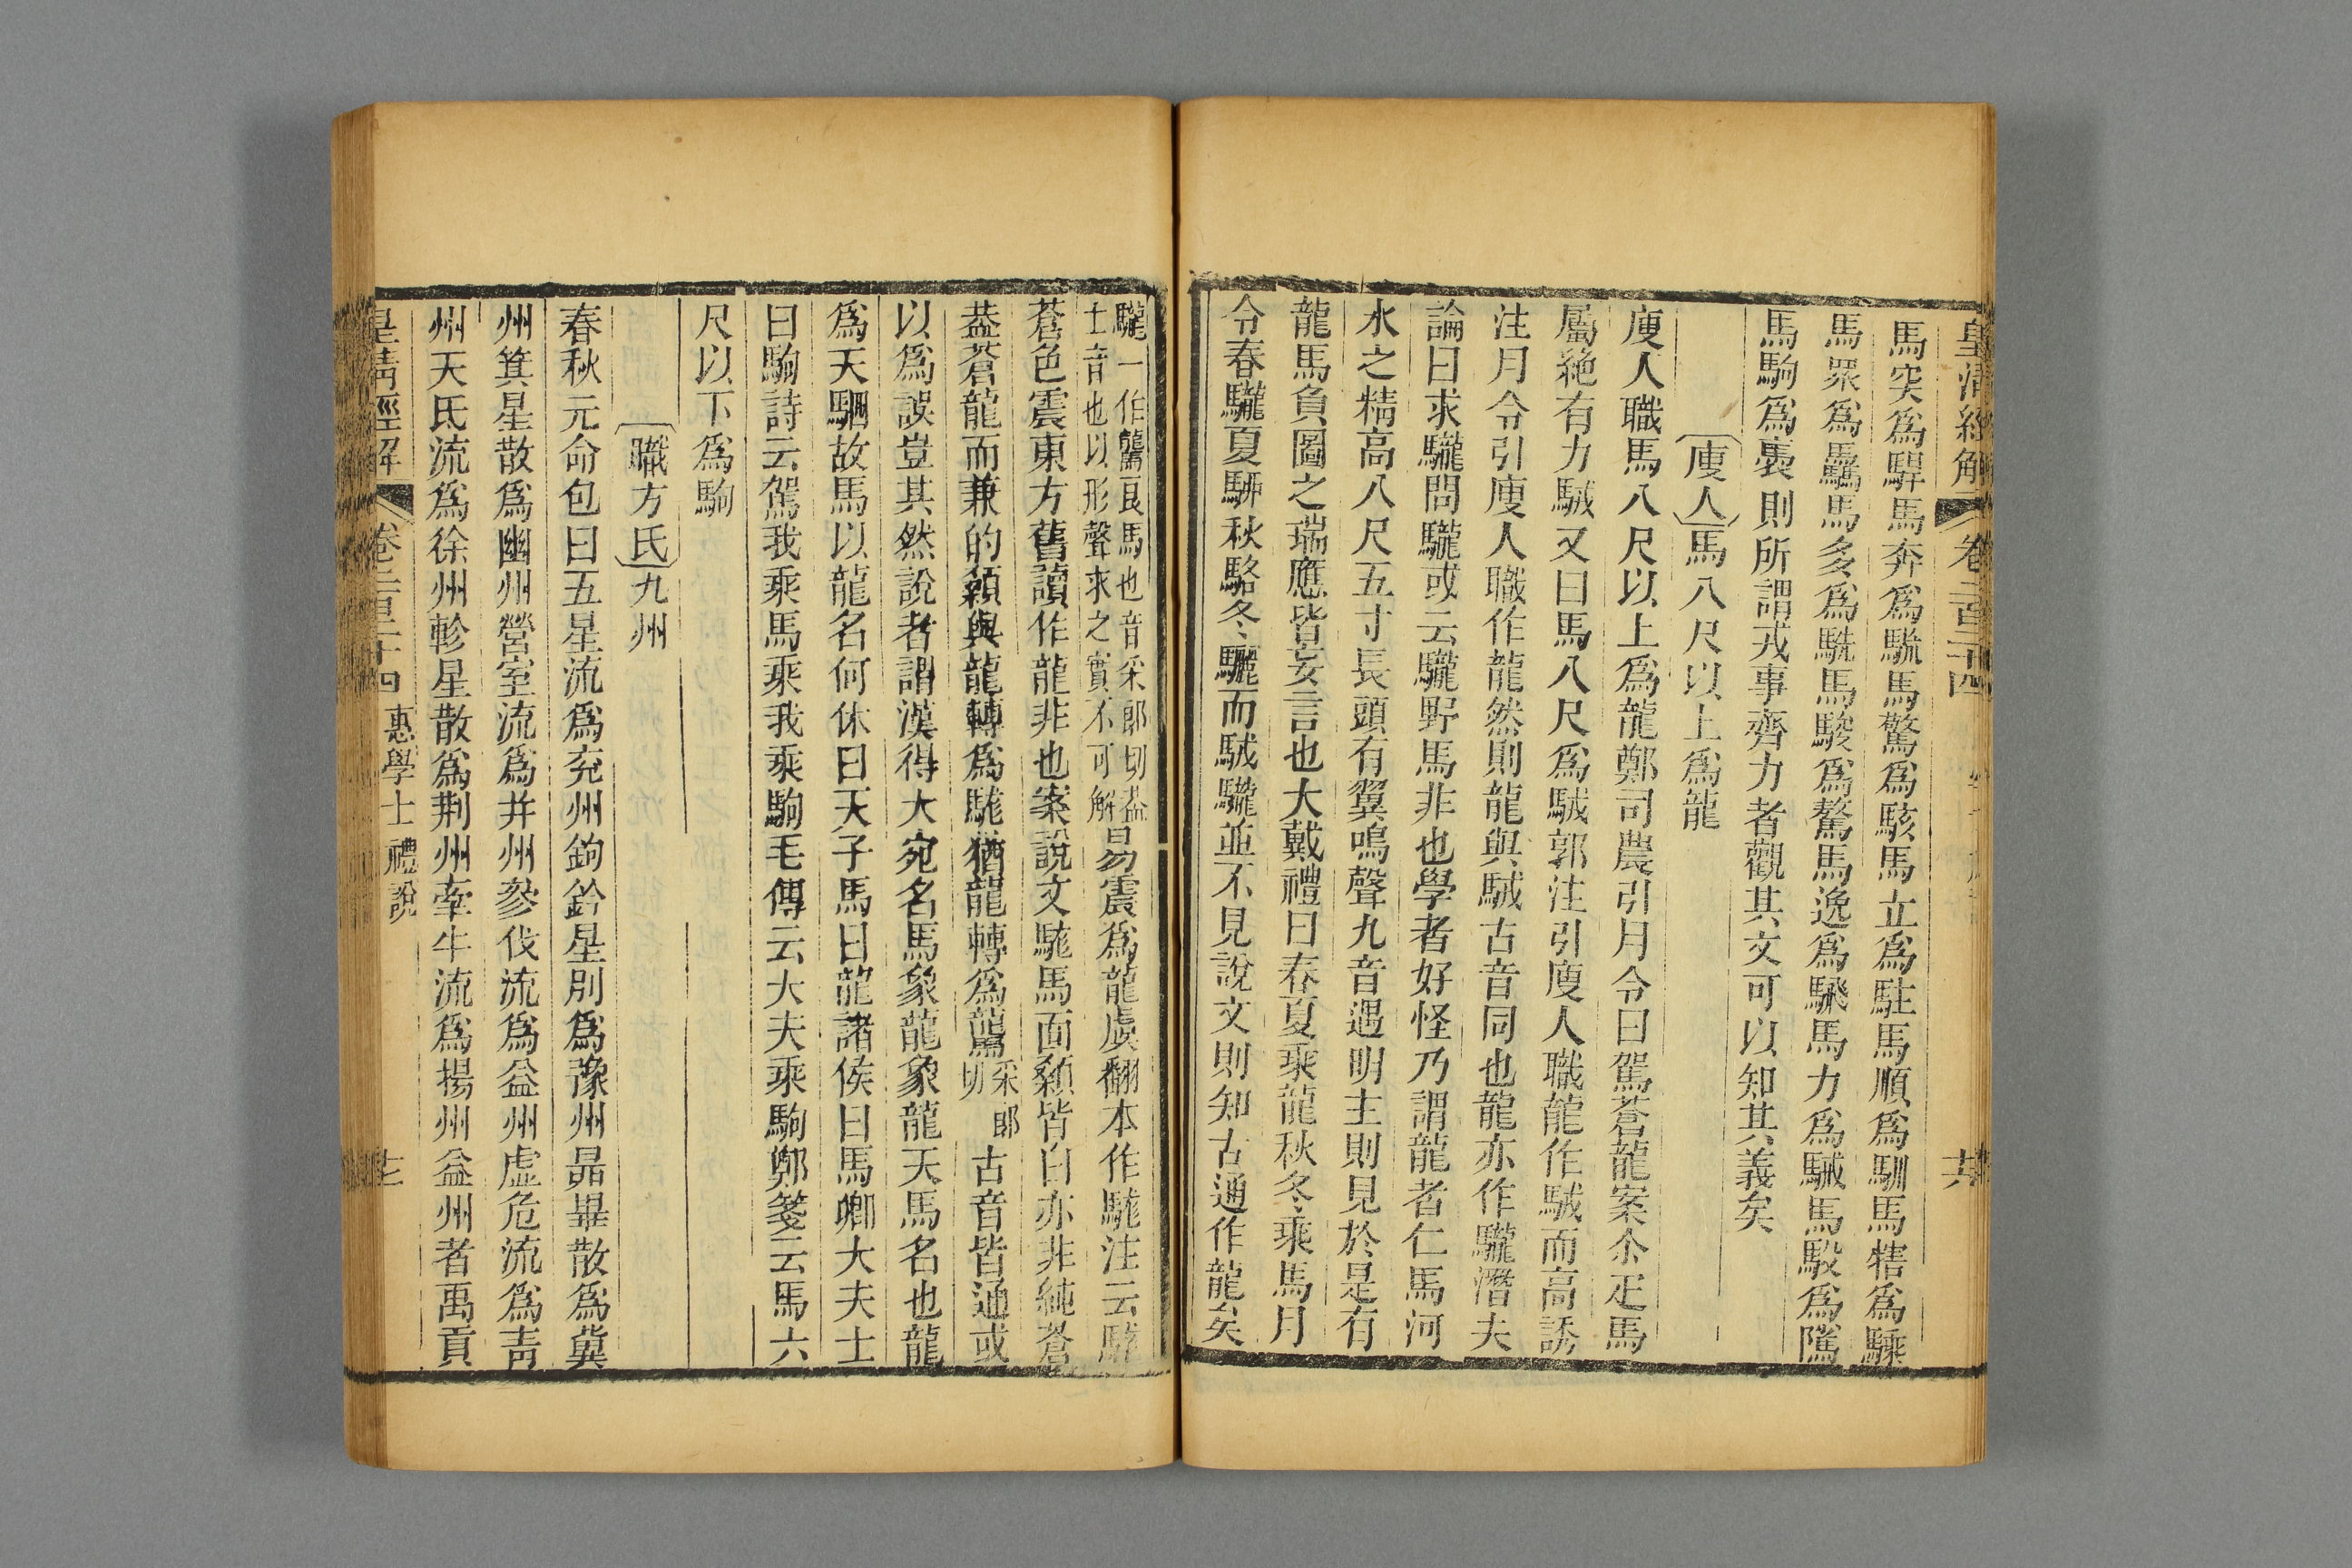 皇清經解 卷二百二十四 六
馬突爲駻馬奔爲駾馬驚爲駭馬立爲駐馬順爲馴馬犗爲騬
馬眾爲驫馬多爲駪馬駿爲驁馬逸爲騛馬力爲駥馬駁爲騭
馬駒爲褭則所謂戎事齊力者觀其文可以知其義矣
廋人馬八尺以上爲龍
廋人職馬八尺以上爲龍鄭司農引月令曰駕蒼龍案尒疋馬
屬絶有力駥又曰馬八尺爲駥郭注引廋人職龍作駥而高誘
注月令引廋人職作龍然則龍與駥古音同也龍亦作驡潛夫
論曰求驡問驡或云驡野馬非也學者好怪乃謂龍者仁馬河
水之精高八尺五寸長頭有翼鳴聲九音遇明主則見於是有
龍馬負圖之瑞應皆妄言也大戴禮曰春夏乘龍秋冬乘馬月
令春驡夏騂秋駱冬驪而駥驡並不見說文則知古通作龍矣
驡一作驡良馬也音釆郎切葢
士音也以形聲求之實不可解
易震爲龍虞翻本作駹注云駹
蒼色震東方舊讀作龍非也案說文駹馬面顙皆白亦非純蒼
葢蒼龍而兼的顙與龍轉爲駹猶龍轉爲驡釆郎切古音皆通或
以爲誤豈其然說者謂漢得大宛名馬象龍象龍天馬名也龍
爲天駟故馬以龍名何休曰天子馬曰龍諸侯曰馬卿大夫士
曰駒詩云駕我乘馬乘我乘駒毛傳云大夫乘駒鄭箋云馬六
尺以下爲駒
職方氏九州
春秋元命包曰五星流爲兖州鉤鈐星別爲豫州昴畢散爲冀
州箕星散爲幽州營室流爲并州參伐流爲益州虛危流爲靑
州天氐流爲徐州軫星散爲荆州牽牛流爲揚州益州者禹貢
皇清經解 卷二百二十四 惠學士禮說 七